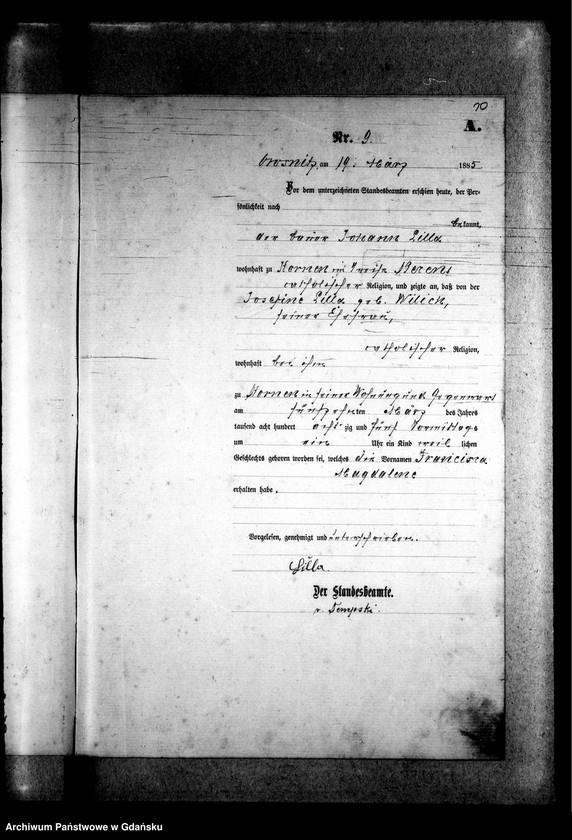 10
A.
Nr. 9.
am 19. März 1885
Vor dem unterzeichneten Standesbeamten erschien heute, der Per-
sönlichkeit nach
bekannt,
der Bauer Johann Lilla
wohnhaft zu Kornen im Kreise Berent
catholischer Religion, und zeigte an, daß von der
Josefine Lilla geb. Wilich,
seiner Ehefrau,
catholischer Religion,
wohnhaft bei ihm
zu Kornen in seiner Wohnung und Gegenwart
am fünfzehnten März des Jahres
tausend acht hundert achtzig und fünf Vormittags
um ein Uhr ein Kind weiblichen
Geschlechts geboren worden sei, welches die Vornamen Francisca
Magdalene
erhalten habe.
Vorgelesen, genehmigt und unterschrieben.
Lilla
Der Standesbeamte.
Archiwum Państwowe w Gdańsku